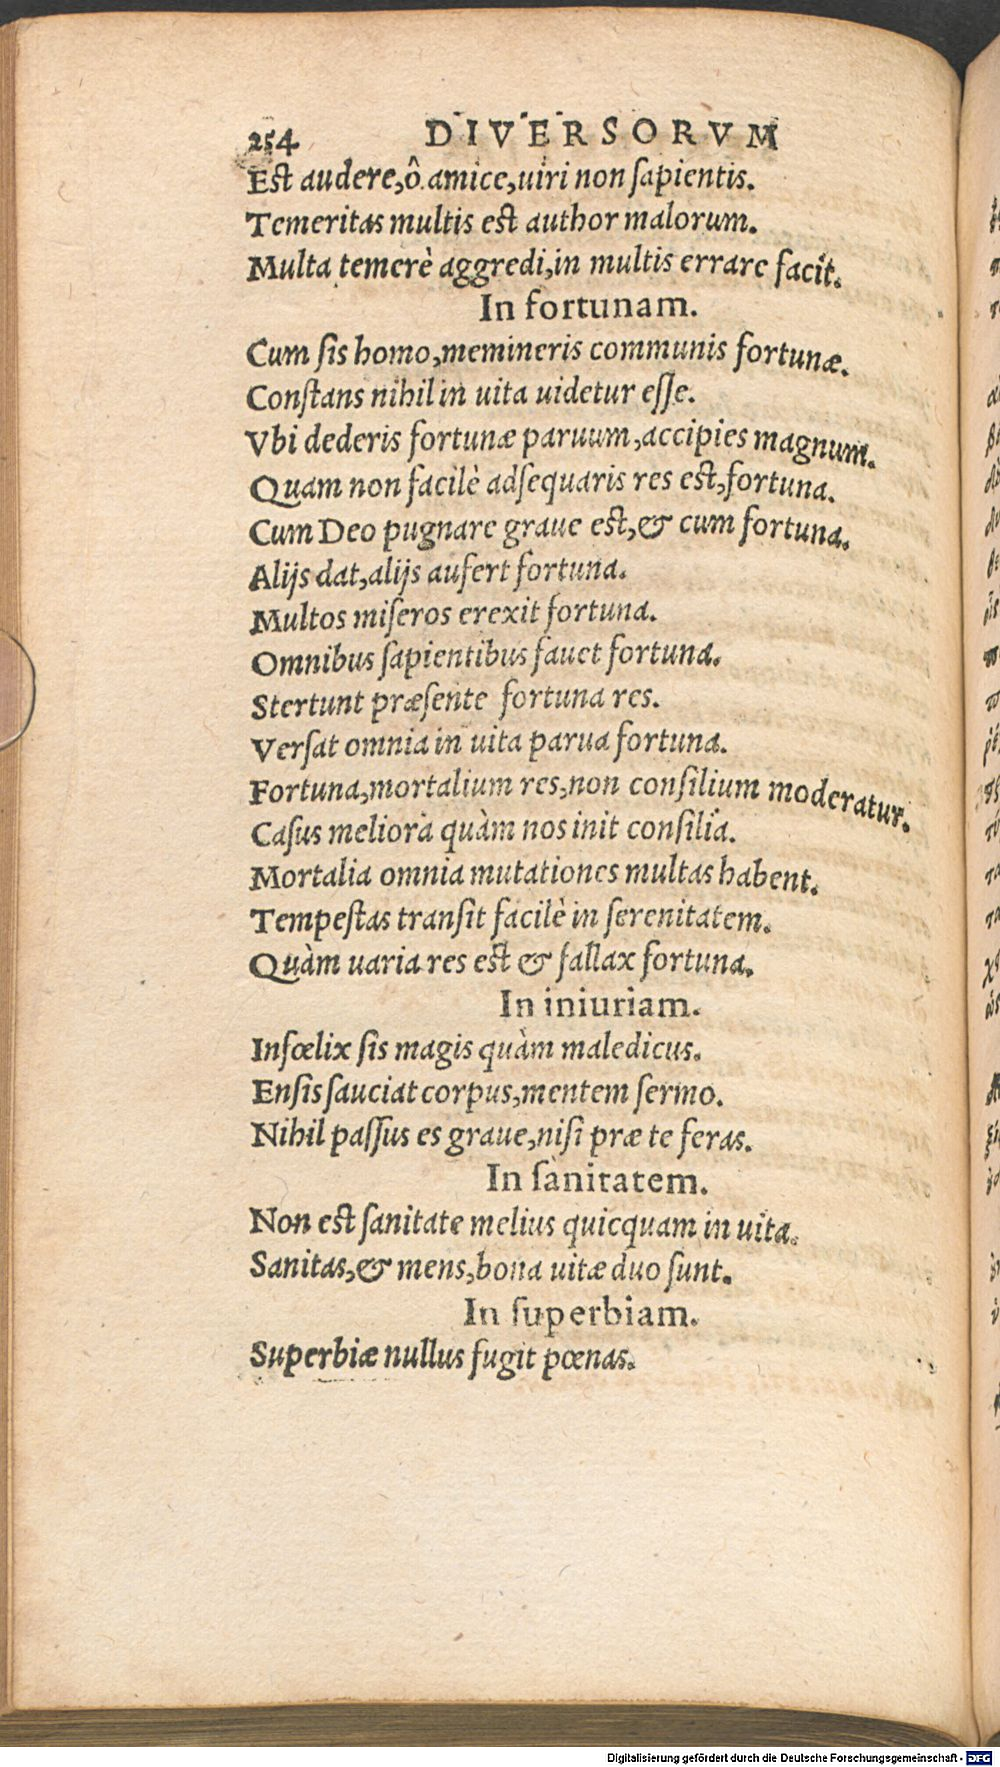 254 DIVERSORVM
Est audere, ô amice, uiri non ſapientis.
Temeritas multis est author malorum.
Multa temerè aggredi, in multis errare facit.
In fortunam.
Cum ſis homo, memineris communis fortunæ.
Conſtans nihil in uita uidetur eſſe.
Vbi dederis fortunæ paruum, accipies magnum.
Quam non facilè adſequaris res est, fortuna.
Cum Deo pugnare graue est, & cum fortuna.
Alijs dat, alijs aufert fortuna.
Multos miſeros erexit fortuna.
Omnibus ſapientibus fauet fortuna.
Stertunt præſente fortuna res.
Verſat omnia in uita parua fortuna.
Fortuna, mortalium res, non conſilium moderatur.
Caſus meliora quàm nos init conſilia.
Mortalia omnia mutationes multas habent.
Tempeſtas tranſit facilè in ſerenitatem.
Quàm uaria res est & fallax fortuna.
In iniuriam.
Infœlix ſis magis quàm maledicus.
Enſis ſauciat corpus, mentem ſermo.
Nihil paſſus es graue, niſi præ te feras.
In ſanitatem.
Non est ſanitate melius quicquam in uita.
Sanitas, & mens, bona uitæ duo ſunt.
In ſuperbiam.
Superbiæ nullus fugit pœnas.
Digitalisierung gefördert durch die Deutsche Forschungsgemeinschaft - DFG